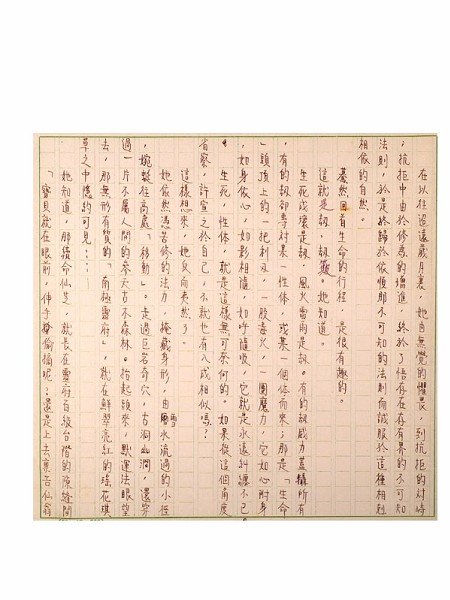 在以往迢遠歲月裏，她自無覺的懼畏，到抗拒的對峙
；抗拒中由於修悫的增進，終於了悟存在存有界的不可知
法則，於是終歸於依順那不可知的法則而誠服於這種相剋
相依的自然。
驀然回首生命的行程，是很有趣的。
這就是劫，劫數。她知道。
生死成壞是劫，風火雷雨是劫。有的劫威力蓋攝所有
，有的劫卻專對某一性体，或某一個体而來；那是「生命
」頭頂上的一把利刃，一股毒火，一團魔力，它如心附身
，如身依心，如影相隨，如呼隨吸，它就是永遠糾纏不已
。
生死，性体，就是這樣無可奈何的。如果從這個角度
省察，許宣之於自己，不就也有八成相似嗎？
這樣想來，她反而夷然了。
她依然憑苦修的法力，掩藏身形，由雪水流過的小徑
，婉蜒往高處「移動」。走過巨岩奇穴，古洞幽澗，還穿
過一片不屬人間的參天古木森林。抬起頭來，默運法眼望
去，那無形有質的「南極靈府」，就在鮮翠亮紅的瑤花琪
草之中隱約可見……
她知道，那續命仙芝，就長在靈府百級台階的隙縫間
「寶貝就在眼前，伸手偷摘呢？還是上去稟告仙翁